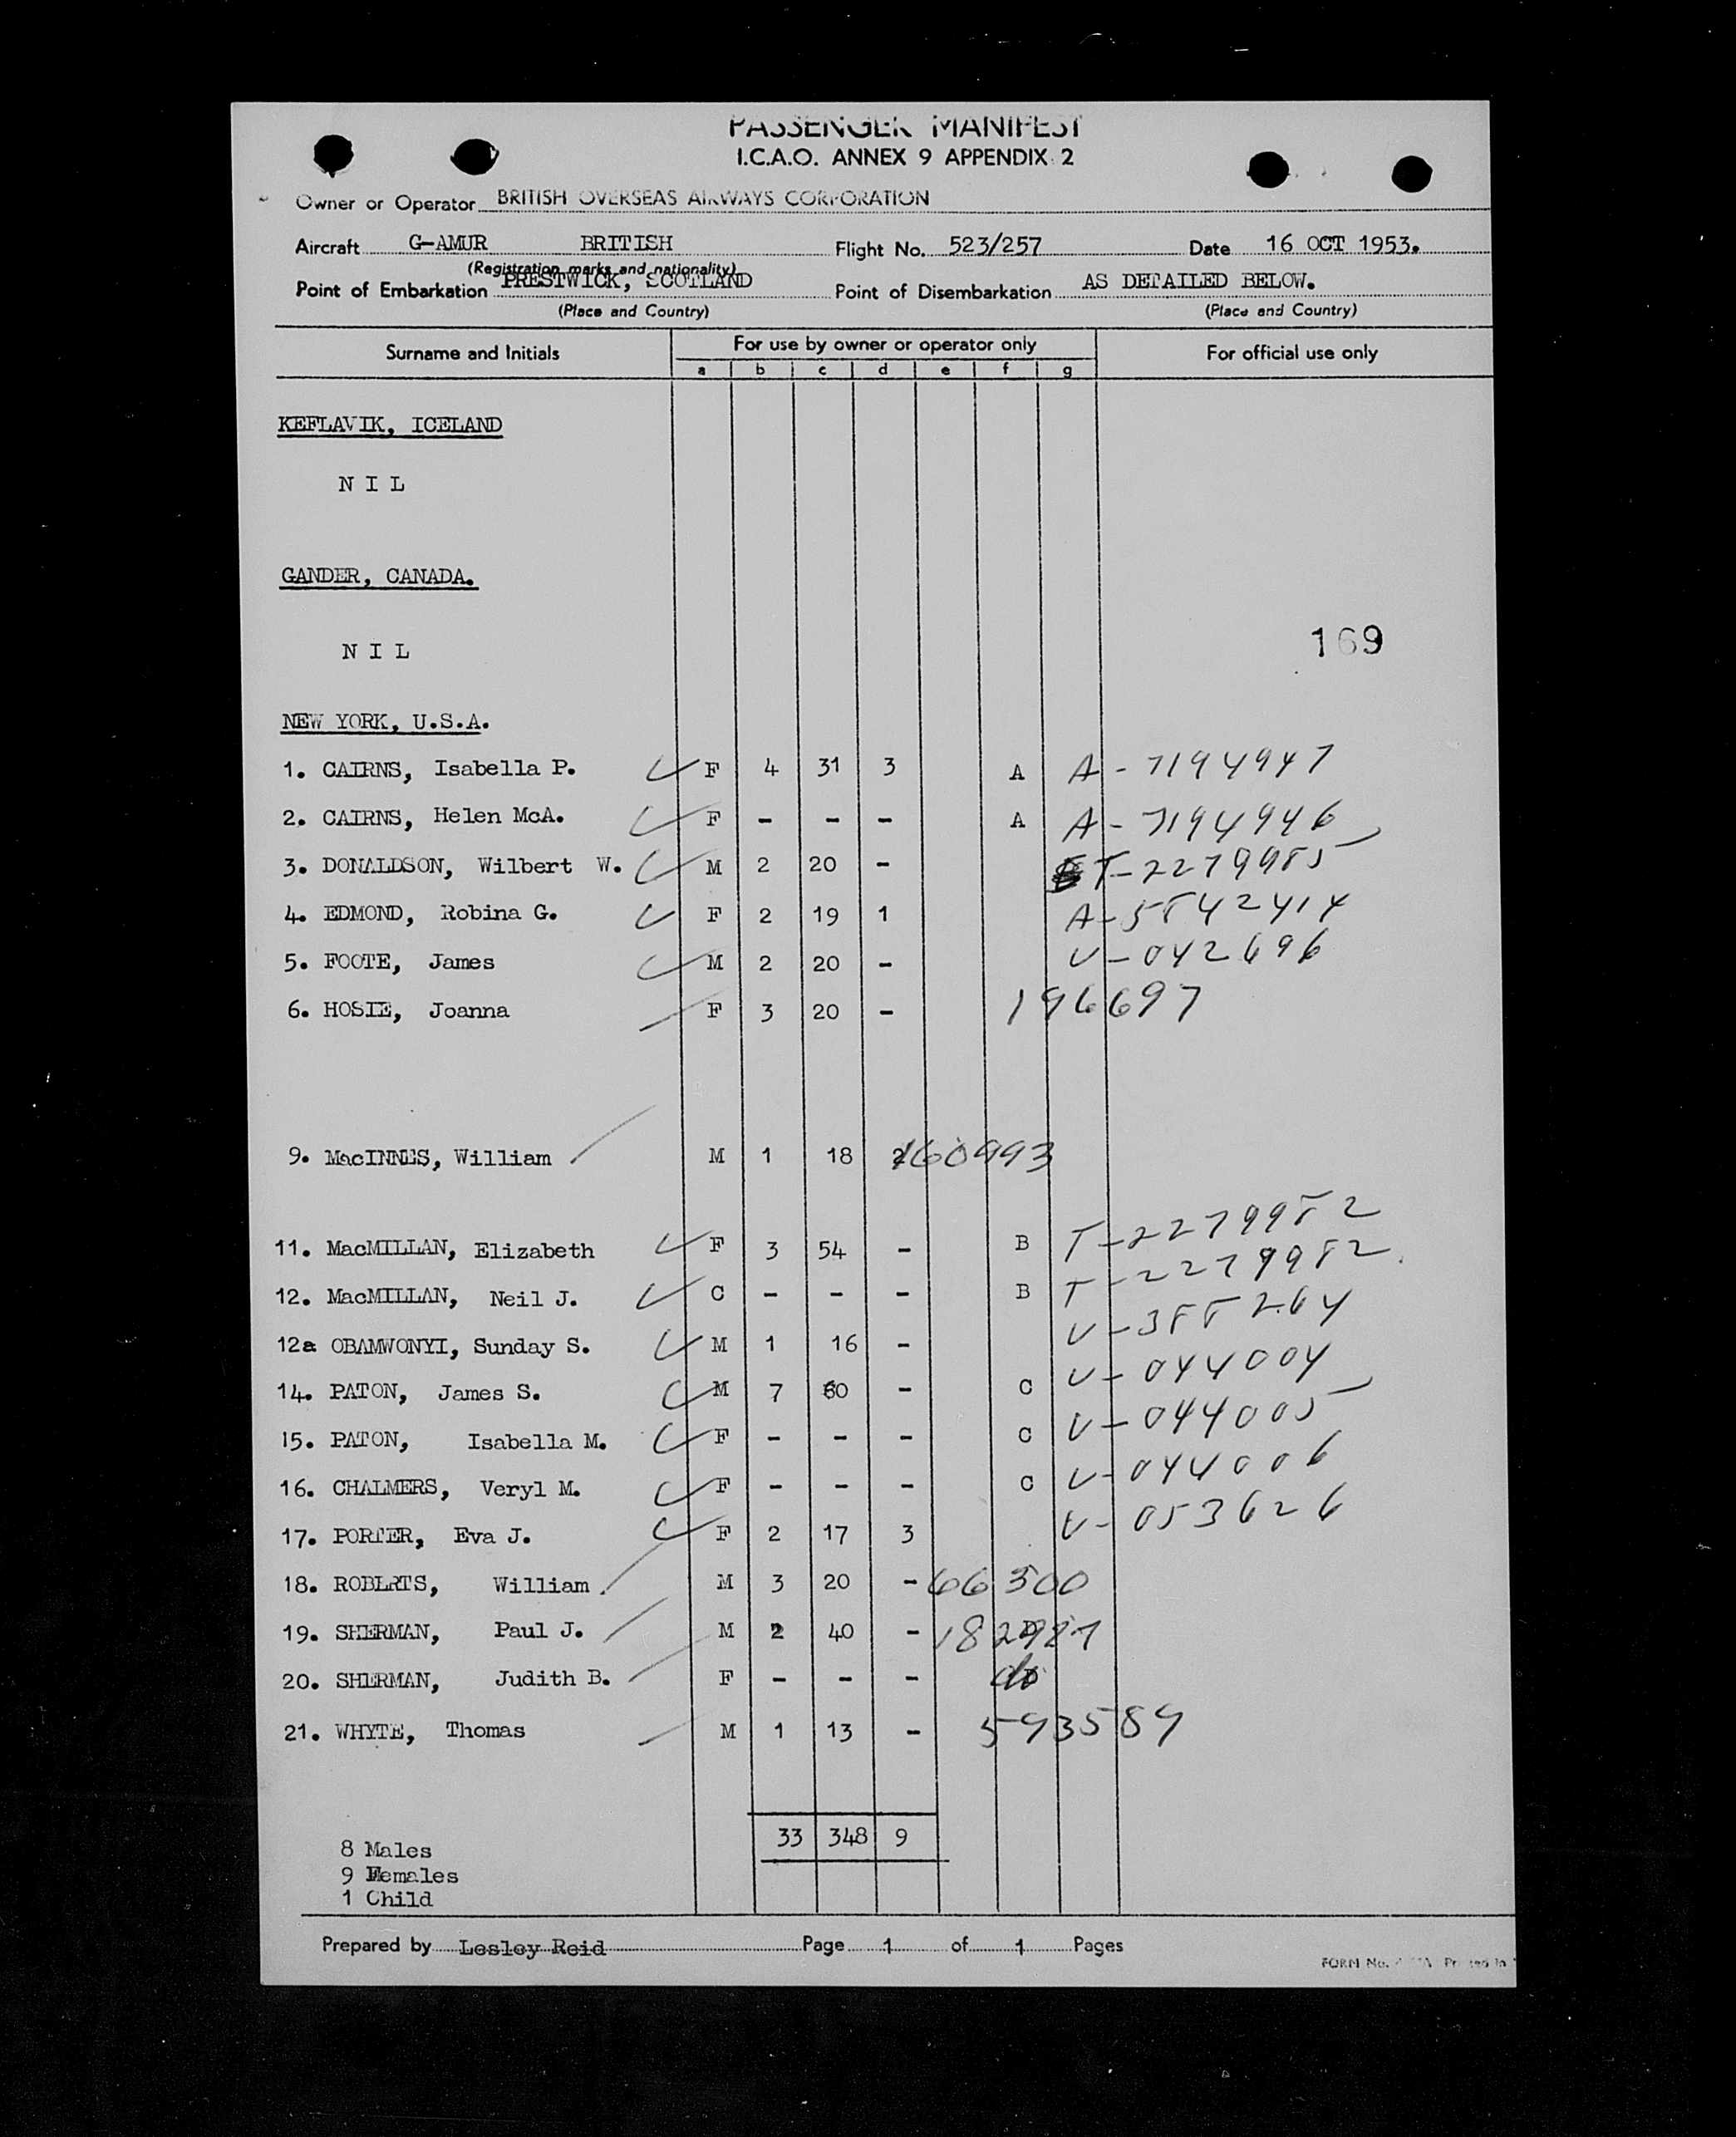 PASSENGER MANIFEST
I.C.A.O. ANNEX 9 APPENDIX 2
Owner or Operator BRITISH OVERSEAS AIRWAYS CORPORATION
Aircraft G-AMUR BRITISH Flight No. 523/257 Date 16 OCT 1953.
(Registration marks and nationality)
Point of Embarkation PRESTWICK, SCOTLAND Point of Disembarkation AS DETAILED BELOW.
(Place and Country) (Place and Country)
Surname and Initials For use by owner or operator only For official use only
a b c d e f g
KEFLAVIK, ICELAND
N I L
GANDER, CANADA.
N I L 169
NEW YORK, U.S.A.
1. CAIRNS, Isabella P. F 4 31 3 A A-7194947
2. CAIRNS, Helen McA. F - - - A A-7194946
3. DONALDSON, Wilbert W. M 2 20 - T-2279985
4. EDMOND, Robina G. F 2 19 1 A-5842414
5. FOOTE, James M 2 20 - V-042696
6. HOSIE, Joanna F 3 20 - 196697
9. MacINNES, William M 1 18 2 160993
11. MacMILLAN, Elizabeth F 3 54 - B T-2279982
12. MacMILLAN, Neil J. C - - - B T-2279982
12a OBAMWONYI, Sunday S. M 1 16 - V-388264
14. PATON, James S. M 7 60 - C V-044004
15. PATON, Isabella M. F - - - C V-044005
16. CHALMERS, Veryl M. F - - - C V-044006
17. PORTER, Eva J. F 2 17 3 V-053626
18. ROBERTS, William M 3 20 - 66300
19. SHERMAN, Paul J. M 2 40 - D 182987
20. SHERMAN, Judith B. F - - - D do
21. WHYTE, Thomas M 1 13 - 593589
33 348 9
8 Males
9 Females
1 Child
Prepared by Lesley Reid Page 1 of 1 Pages
FORM No.